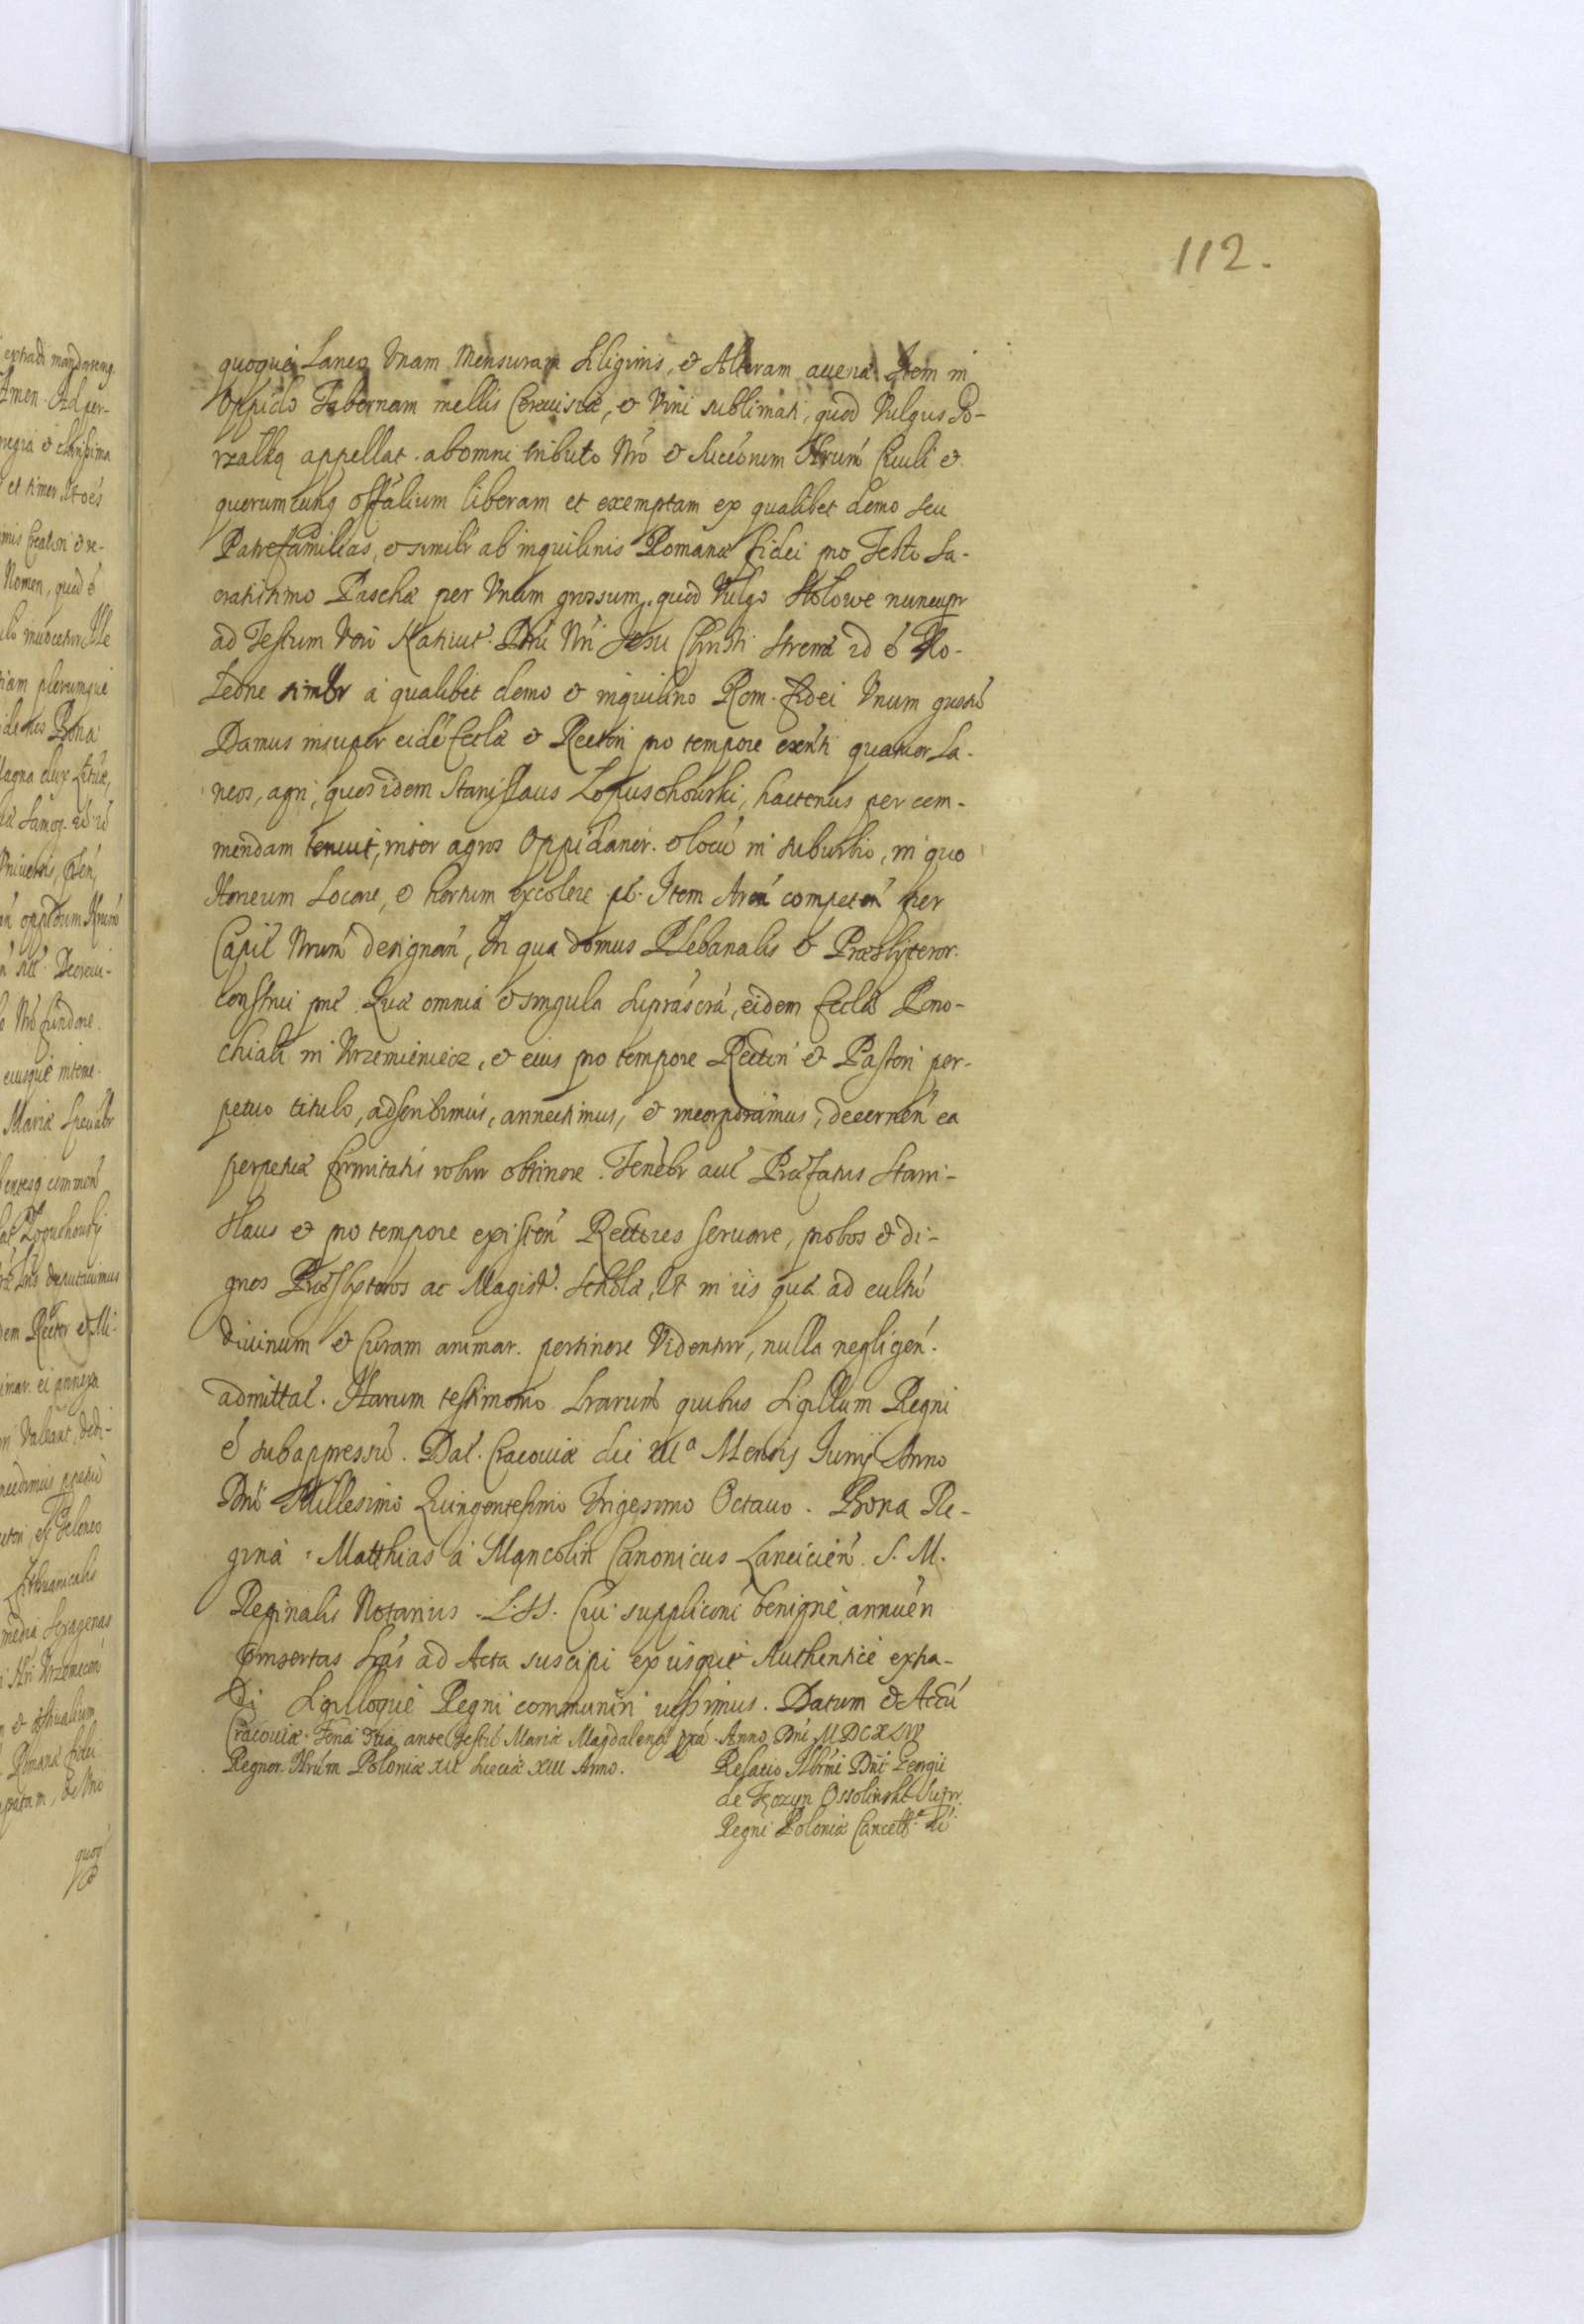 112.
quoque Laneo Vnam Mensuram Siliginis, et Alteram auenæ. Item in
Oppido Tabernam mellis Cereuisiæ, et Vini sublimati, quod Vulgus Go-
rzałką appellat. ab omni tributo Nrõ et Succõrum Nrorum Ciuili et
quorumcunq offãlium liberam et exemptam ex qualibet domo seu
Patrefamilias, et similr ab inquilinis Romanæ fidei pro Festo Sa-
cratissimo Paschæ per Vnum grossum, quod Vulgo Stolowe nuncupr
ad Festum Vero Natiuit. Dñi Nri Jesu Christi Strenæ id ẽ Ko-
ledne similr a qualibet domo et inquilino Rom. fidei Vnum grossũ
Damus insuper eidẽ Ecclæ et Rectori pro tempore exẽnti quatuor La-
neos, agri, quos idem Stanislaus Lopuschouski, hactenus per com-
mendam tenuit, inter agros Oppidanor. et locũ in suburbio, in quo
Horreum Locare, et hortum excolere pt. Item Areã competeñ per
Capit Nrum designañ, In qua domus Plebanalis et Præsbyteror.
construi pnt. Quæ omnia et singula suprascra, eidem Ecclæ Paro-
chiali in Krzemieniecz, et eius pro tempore Rectori et Pastori per-
petuo titulo, adscribimus, annectimus, et incorporamus, decerneñ ea
perpetuæ firmitatis robur obtinere. Tenebr aut Præfatus Stani-
slaus et pro tempore existeñ Rectores seruare, probos et di-
gnos Præsbyteros ac Magist. Scholæ, Ut in iis quæ ad cultũ
diuinum et Curam animar. pertinere Videntur, nulla negligeñ.
admittat. Harum testimonio Lrarum quibus Sigillum Regni
ẽ subappressũ. Dat. Cracouiæ die Mensis Junij Anno
Dni Millesimo Quingentesimo Trigesimo Octauo. Bona Re-
gina. Matthias a Canonicus Lancicieñ. S. M.
Reginalis Notarius. L. SS. Cui supplicõni benigne annueñ
insertas Lras ad Acta suscipi ex iisque Authentice extra-
di Sigilloque Regni communiri iussimus. Datum et Actũ
Cracouiæ. Feria 3tia ante Festũ Mariæ Magdalenæ Anno Dni MDCXLIV
Regnor. Nrum Poloniæ XII Sueciæ XIII Anno. Relatio Illrmi Dni Georgii
de Tęczyn Ossolinski Supr.
Regni Poloniæ Cancell.